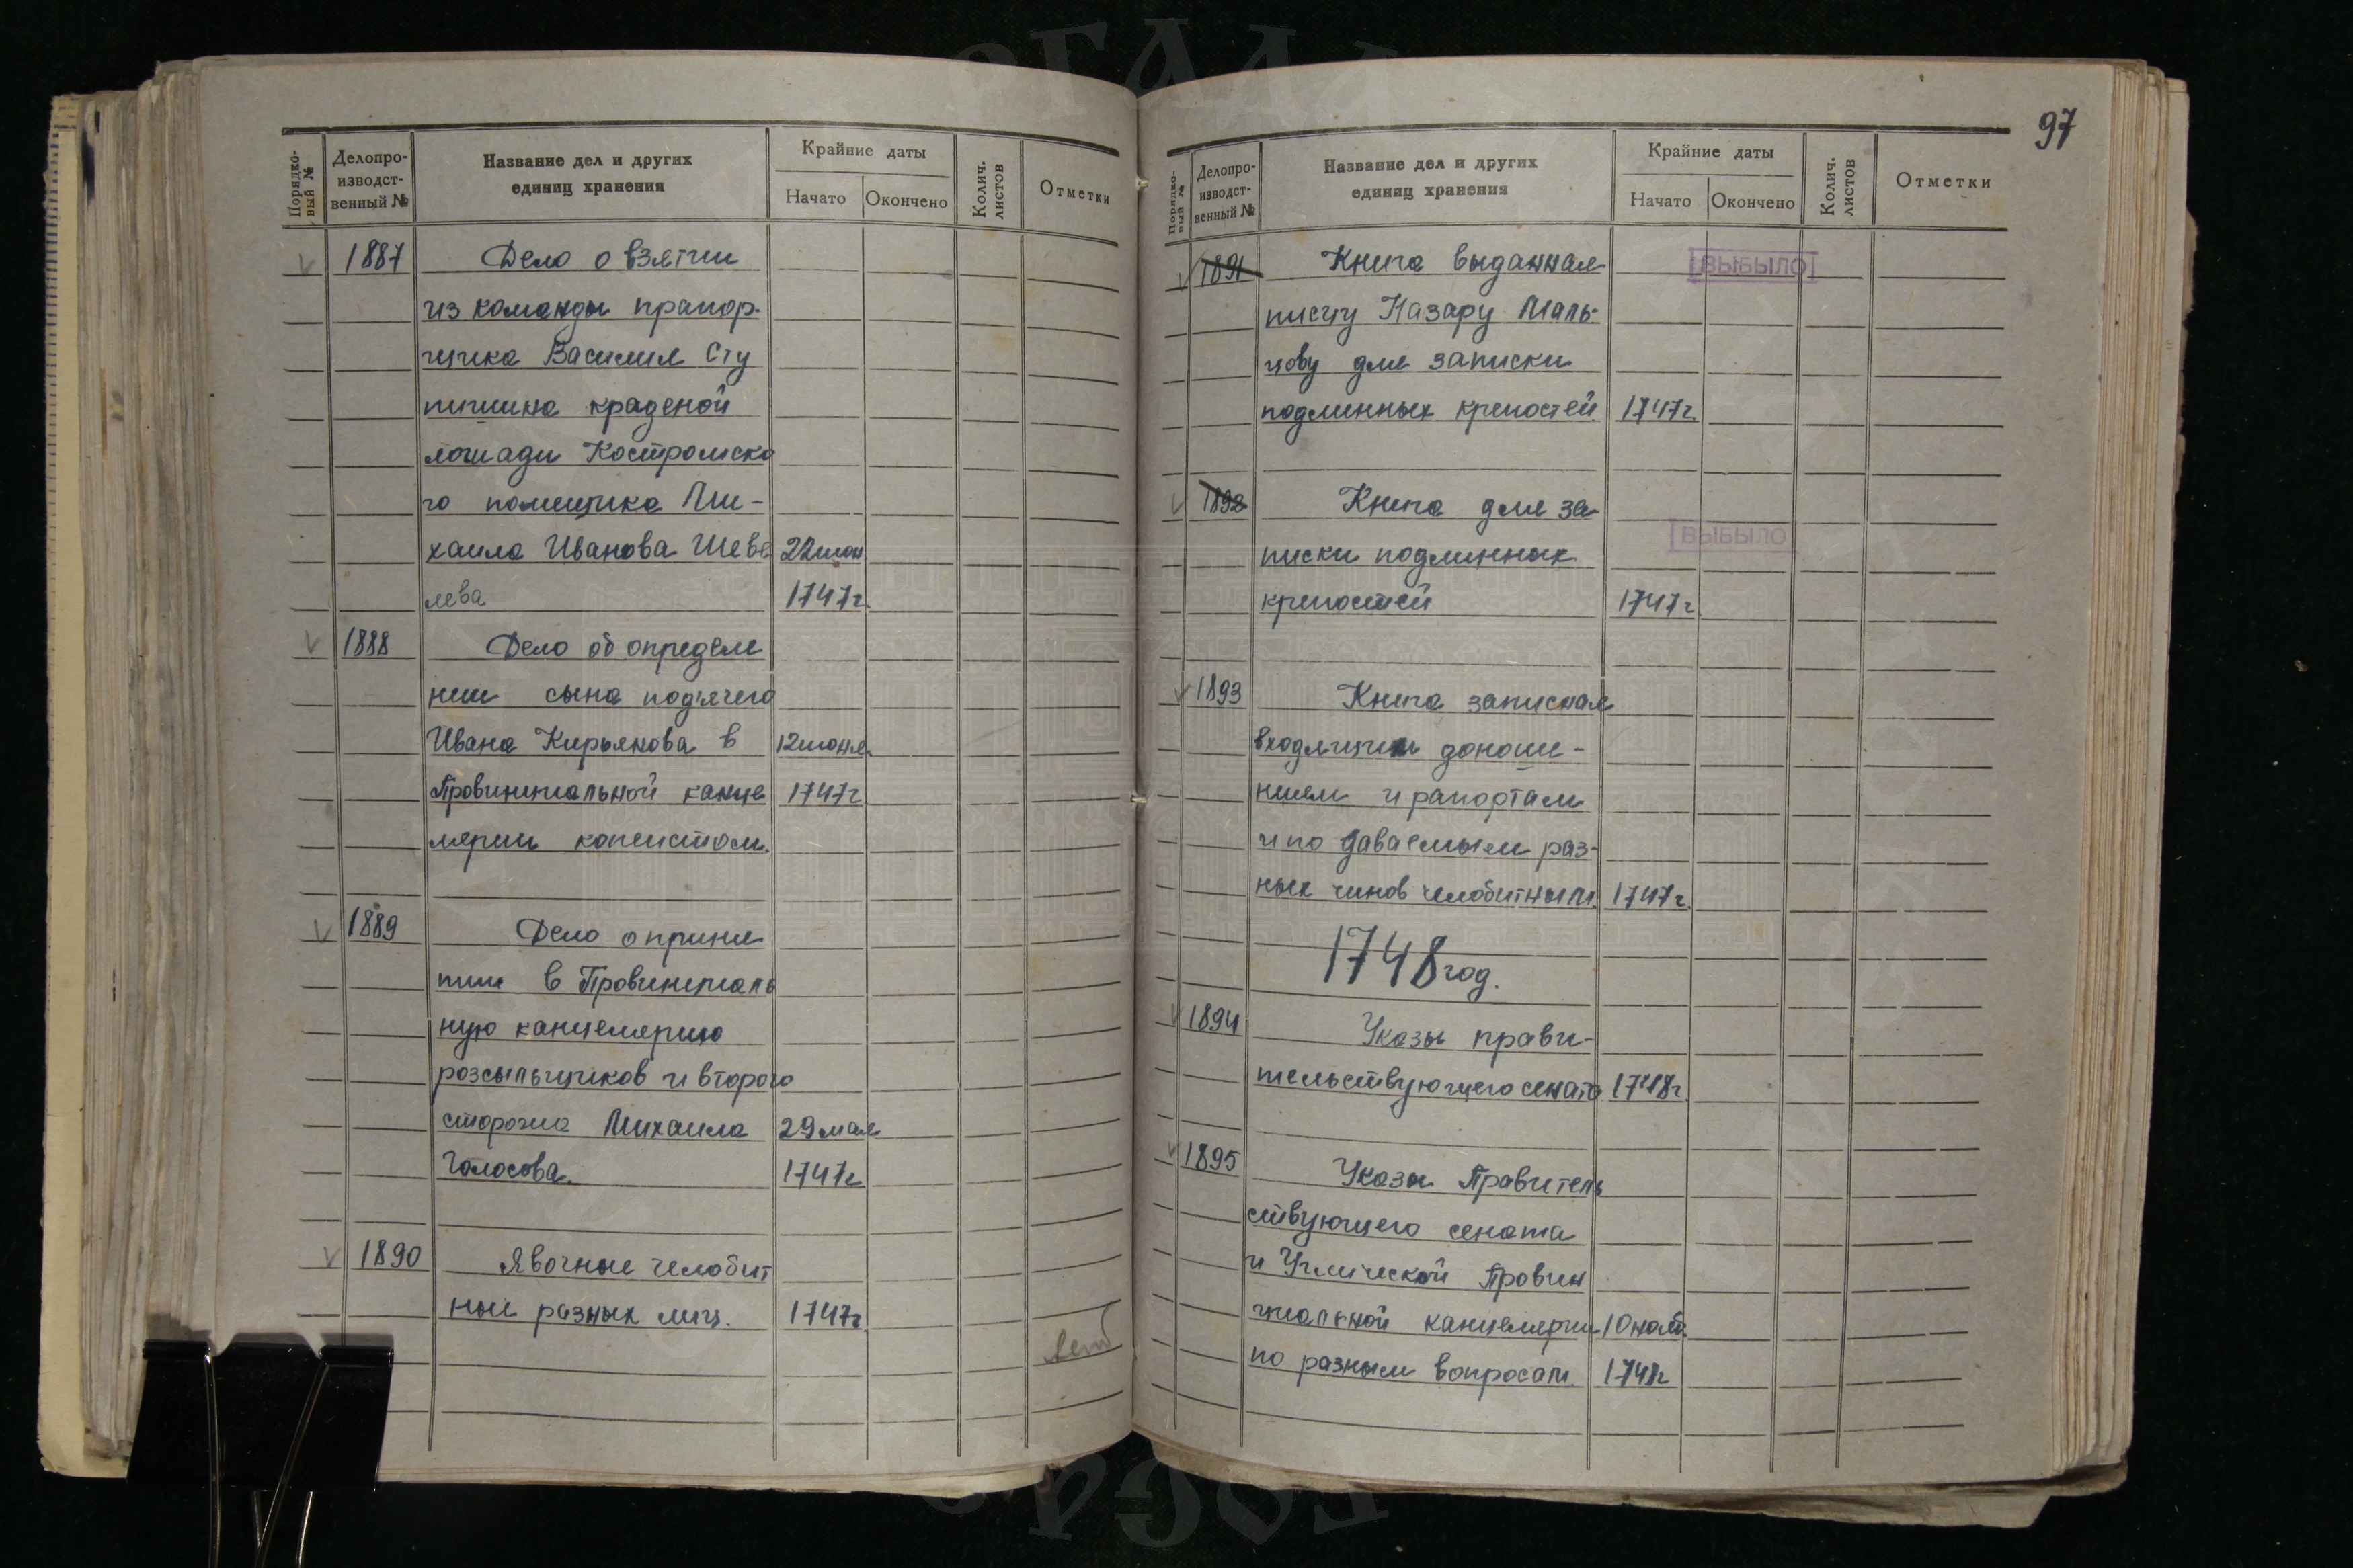 97
Порядко-
вый №
Делопро-
изводст-
венный №
Название дел и других
единиц хранения
Крайние даты
Начато
Окончено
Колич.
листов
Отметки
1887 Дело о взятии
из команды прапор-
щика Василия Сту
пишина краденой
лошади Костромско
го помещика Ми-
хаила Иванова Шеве 22 июн
лева 1747 г.
1888 Дело об определе
нии сына подячего
Ивана Кирьякова в 12 июня
Провинциальной канце 1747 г
лярии копеистом.
1889 Дело о приня
тии в Провинциаль
ную канцелярию
розсыльщиков и второго
сторожа Михаила 29 мая
Голосова. 1747 г
1890 Явочные челобит
ные разных лиц. 1747 г.
Порядко-
вый №
Делопро-
изводст-
венный №
Название дел и других
единиц хранения
Крайние даты
Начато
Окончено
Колич.
листов
Отметки
1891 Книга выданная ВЫБЫЛО
писцу Назару Маль-
цову для записки
подлинных крепостей 1747 г.
1892 Книга для за-
ВЫБЫЛО
писки подлинных
крепостей 1747 г
1893 Книга записная
входящим доноше-
нием и рапортам
и по даваемым раз-
ных чинов челобитным. 1747 г.
1748 год.
1894 Указы прави-
тельствующего сената 1748 г.
1895 Указы Правитель
ствующего сената
и Углической Провин
циальной канцелярии 10 нояб.
по разным вопросам. 1748 г